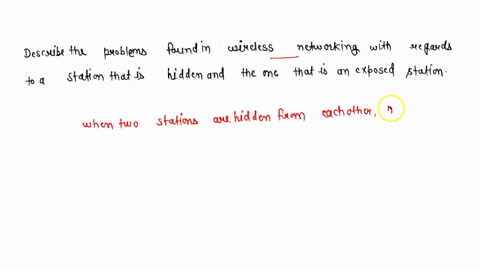 Describe the problems found in wireless networking with regards
to a station that is hidden and the one that is an exposed station.
when two stations are hidden from eachother,